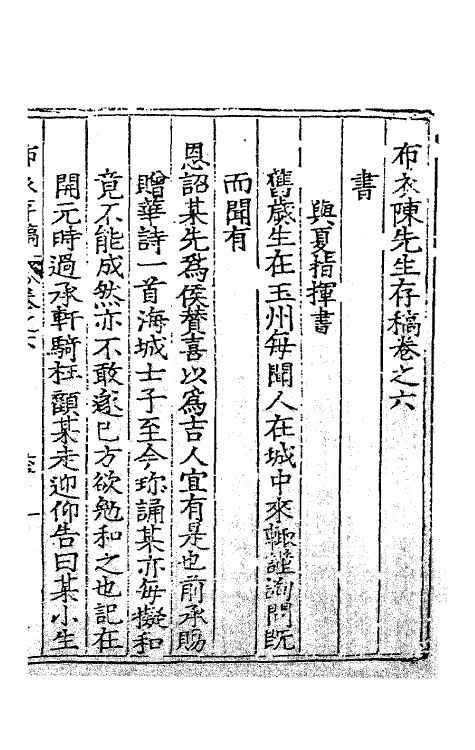 布衣陳先生存稿卷之六
書
與夏指揮書
舊歲生在玉州每聞人在城中來輙謹詢問既
而聞有
恩詔某先爲侯賛喜以爲吉人宜有是也前承賜
贈華詩一首海城士子至今珎誦某亦每擬和
竟不能成然亦不敢遂已方欲勉和之也記在
開元時過承軒騎枉顧某走迎仰告曰某小生
布衣存稿 卷之六 一